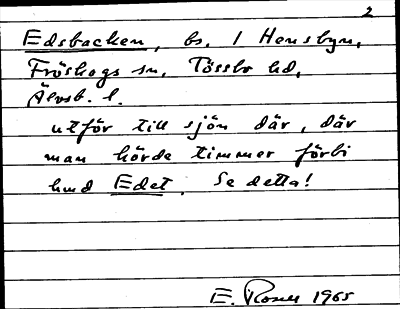 2
Edsbacken, bs. 1 Hensbyn,
Fröskogs sn, Tössbo hd,
Älvsb. l.
utför till sjön där, där
man körde timmer förbi
hmd Edet. Se detta!
E. Rosell 1965